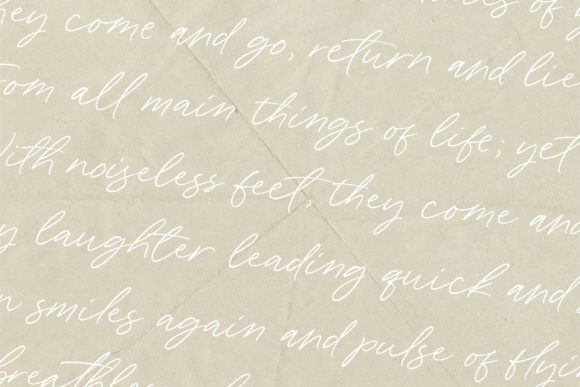 hey come and go, return and lie
rom all main things of life; yet
With noiseless feet they come and
y laughter leading quick and
n smiles again and pulse of flyin
breathl